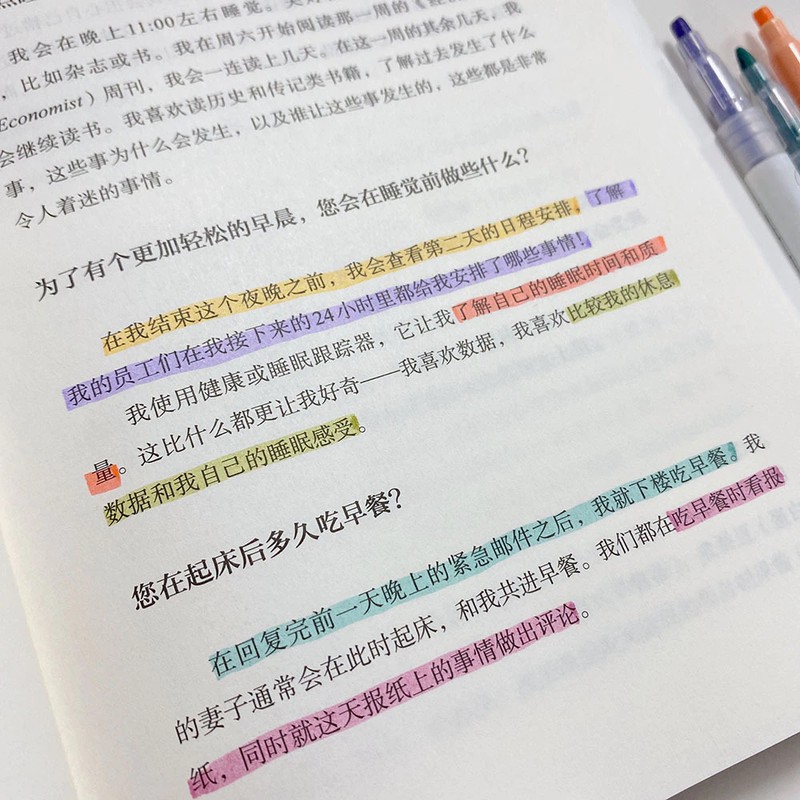 我会在晚上11:00左右睡觉。
，比如杂志或书。我在周六开始阅读那一周的《经济
Economist）周刊，我会一连读上几天。在这一周的其余几天，我
会继续读书。我喜欢读历史和传记类书籍，了解过去发生了什么
事，这些事为什么会发生，以及谁让这些事发生的，这些都是非常
令人着迷的事情。
为了有个更加轻松的早晨，您会在睡觉前做些什么？
在我结束这个夜晚之前，我会查看第二天的日程安排，了解
我的员工们在我接下来的24小时里都给我安排了哪些事情！
我使用健康或睡眠跟踪器，它让我了解自己的睡眠时间和质
量。这比什么都更让我好奇——我喜欢数据，我喜欢比较我的休息
数据和我自己的睡眠感受。
您在起床后多久吃早餐？
在回复完前一天晚上的紧急邮件之后，我就下楼吃早餐。我
的妻子通常会在此时起床，和我共进早餐。我们都在吃早餐时看报
纸，同时就这天报纸上的事情做出评论。